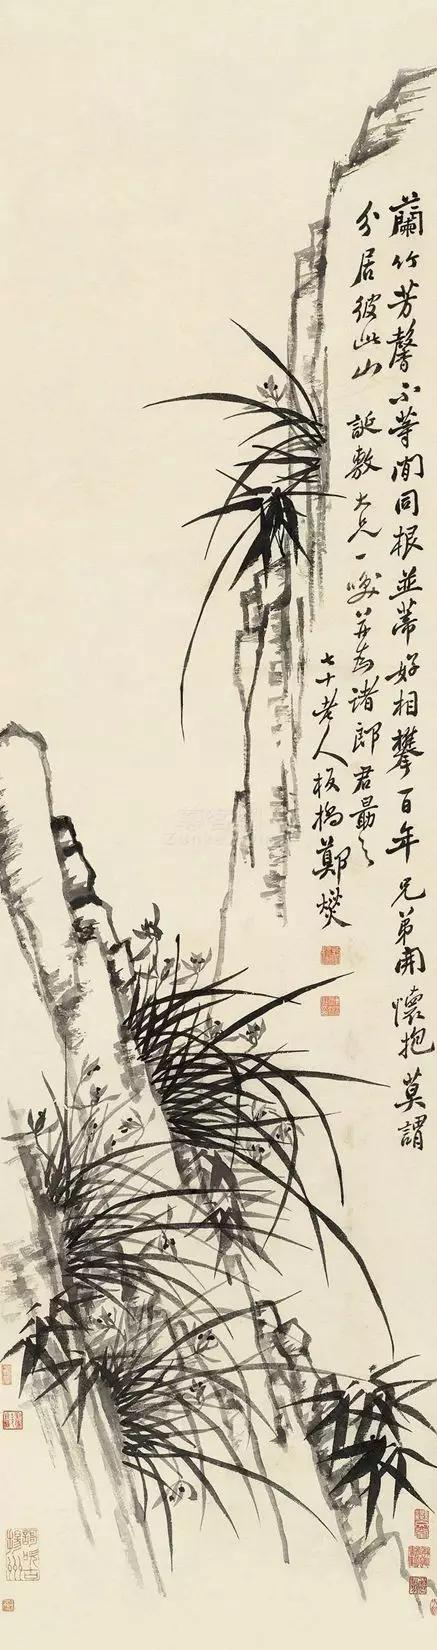 蘭竹芳馨不等閒同根並蒂好相攀百年兄弟開懷抱莫謂
分居彼此山 誕敷大兄一笑并為諸郎君勖之
七十老人板橋鄭燮